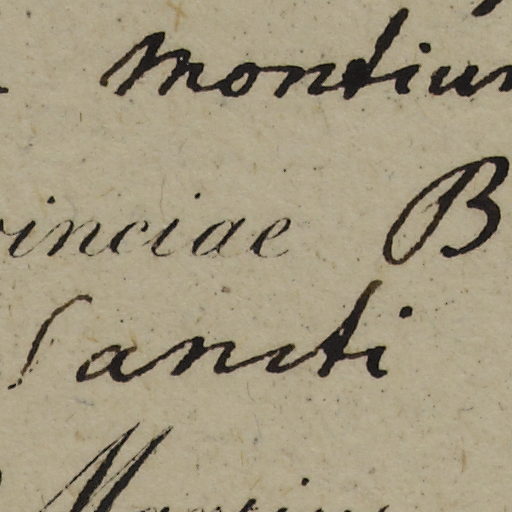 montium
vinciae B
Sancti